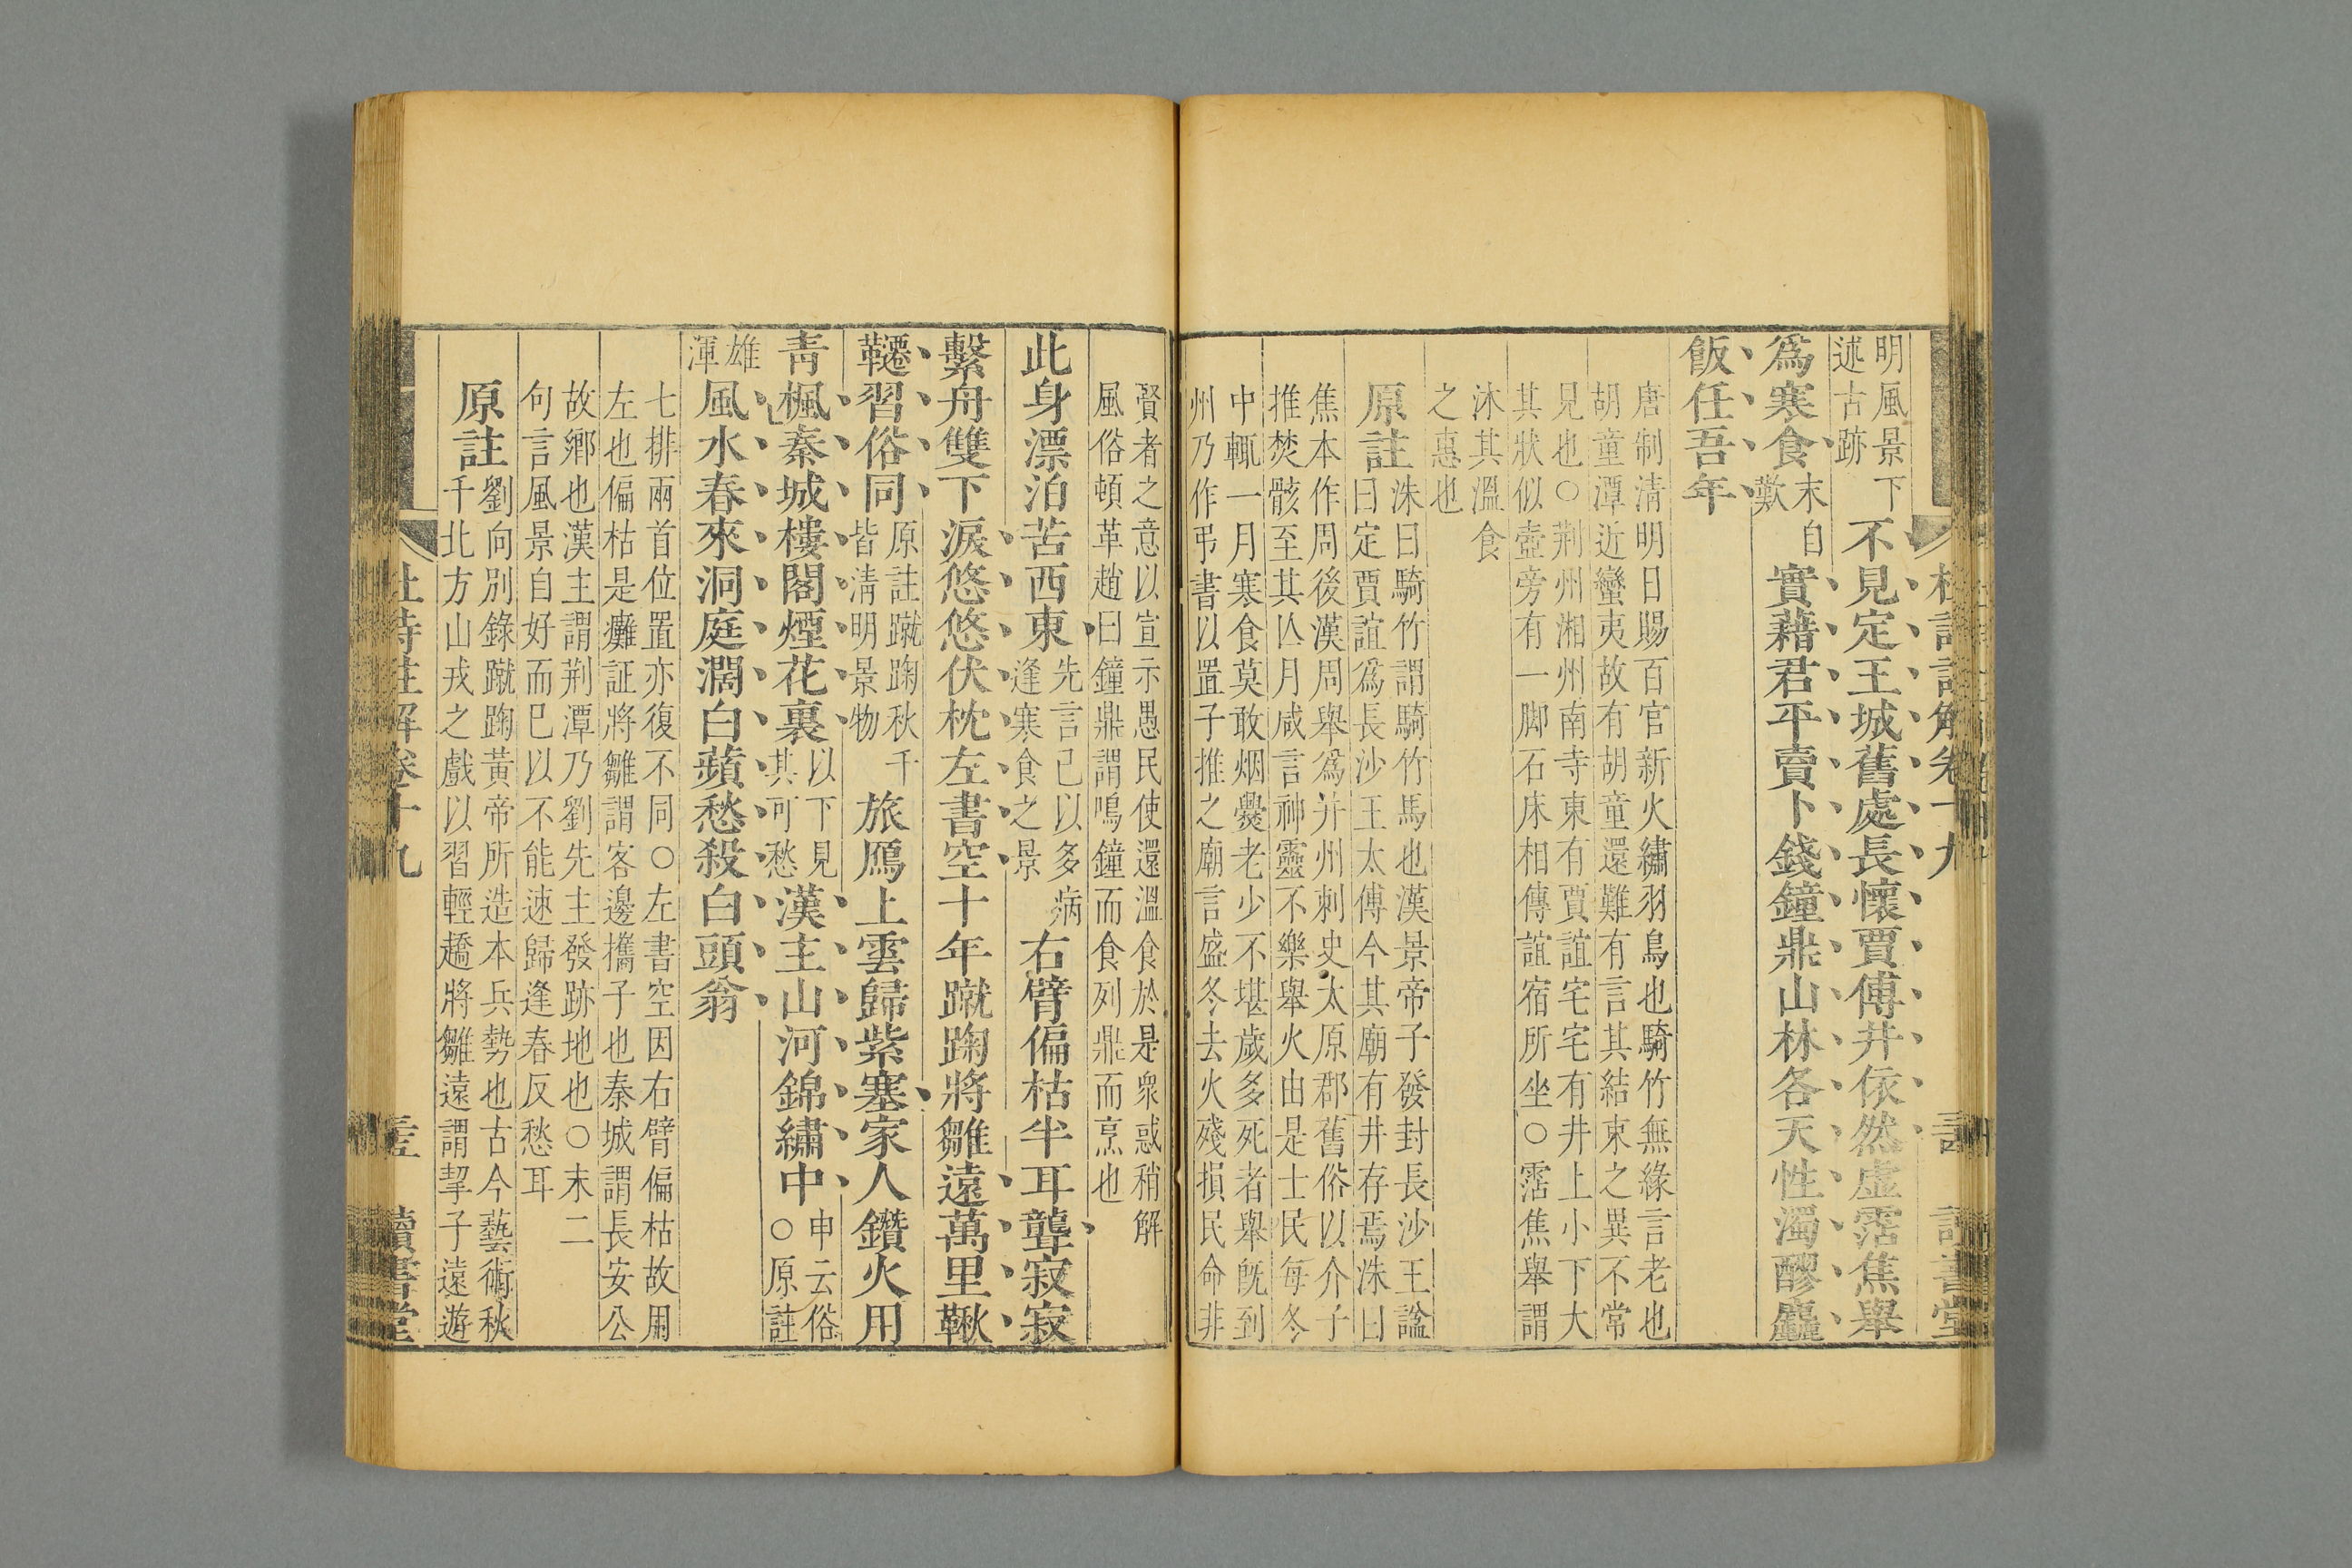 明風景下
述古跡
不見定王城舊處長懷賈傅井依然虛霑焦舉
爲寒食
末自
歎
實藉君平賣卜錢鐘鼎山林各天性濁醪麤
飯任吾年
唐制淸明日賜百官新火繡羽鳥也騎竹無緣言老也
胡童潭近蠻夷故有胡童還難有言其結束之異不常
見也○荆州湘州南寺東有賈誼宅宅有井上小下大
其狀似壺旁有一脚石床相傳誼宿所坐○霑焦舉謂
沐其溫食
之惠也
原註
洙曰騎竹謂騎竹馬也漢景帝子發封長沙王謚
曰定賈誼爲長沙王太傅今其廟有井存焉洙曰
焦本作周後漢周舉爲并州刺史太原郡舊俗以介子
推焚骸至其亾月咸言神靈不樂舉火由是士民每冬
中輒一月寒食莫敢烟爨老少不堪歲多死者舉旣到
州乃作弔書以置子推之廟言盛冬去火殘損民命非
賢者之意以宣示愚民使還溫食於是衆惑稍解
風俗頓革趙曰鐘鼎謂鳴鐘而食列鼎而烹也
此身漂泊苦西東
先言已以多病
逢寒食之景
右臂偏枯半耳聾寂寂
繫舟雙下淚悠悠伏枕左書空十年蹴踘將雛遠萬里鞦
韆習俗同
原註蹴踘秋千
皆淸明景物
旅鴈上雲歸紫塞家人鑽火用
靑楓秦城樓閣煙花裏
以下見
其可愁
漢主山河錦繡中
申云俗
○原註
雄
渾
風水春來洞庭濶白蘋愁殺白頭翁
七排兩首位置亦復不同○左書空因右臂偏枯故用
左也偏枯是癱証將雛謂客邊攜子也秦城謂長安公
故鄉也漢主謂荆潭乃劉先主發跡地也○末二
句言風景自好而已以不能速歸逢春反愁耳
原註
劉向別錄蹴踘黃帝所造本兵勢也古今藝術秋
千北方山戎之戲以習輕趫將雛遠謂挈子遠遊
杜詩註解卷十九
讀書堂